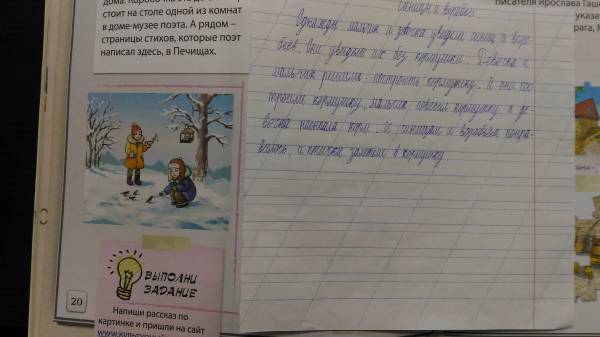 дома. Коробочка
стоит на столе одной из комнат
в доме-музее поэта. А рядом –
страницы стихов, которые поэт
написал здесь, в Печищах.
Синицы и воробьи
Однажды мальчик и девочка увидели синиц и воро-
бьёв. Они увидели их без кормушки. Девочка и
мальчик решили построить кормушку. И они пос-
троили кормушку, мальчик повесил кормушку а де-
вочка насыпала корм. И синицам и воробьям понра-
вилось, и птички залетели в кормушку.
писателя Ярослава Гаше
указа
рага, М
20
ВЫПОЛНИ
ЗАДАНИЕ
Напиши рассказ по
картинке и пришли на сайт